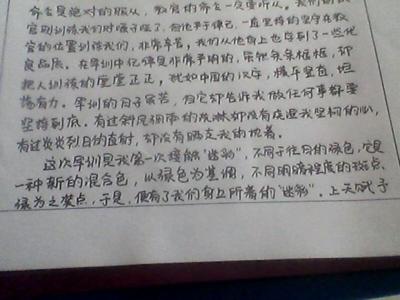 命令是绝对的服从，教官的命令一定要听从。我们的教
官别训练我们时嗓子哑了，但他严于律己，一直坚持的坚守在教
官的位置训练我们，非常辛苦。我们从他身上也学到了一些优
良品质。在军训中纪律是非常严明的，条条框框，却
把人训练的堂堂正正，犹如中国的汉字，横平竖直，坦
荡有力。军训的日子虽苦，但它却告诉我做任何事都要
坚持到底。有过斜风细雨的洗淋却没有浇退我坚固的心，
有过炎炎烈日的直射，却没有晒去我的执着。
这次军训是我第一次接触“迷彩”，不同于往日的绿色，它是
一种新的混合色，以绿色为基调，不同明暗程度的斑点、
绿为之装点，于是，便有了我们身上所着的“迷彩”。上天赋予